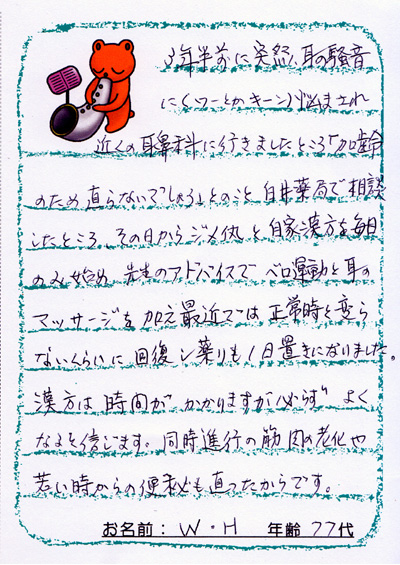 3年半前に突然、耳の騒音
に(ツーとかキーン)悩まされ
近くの耳鼻科に行きましたところ「加齢
のため直らないでしょう」とのこと 自井薬局で相談
したところ、その日からジメ仇と自家漢方を毎日
のみ始め 先生のアドバイスで ベロ運動と耳の
マッサージを加え最近では正常時と変ら
ないくらいに回復し薬りも1日置きになりました。
漢方は時間がかかりますが必らず よく
なると信じます。同時進行の筋肉の老化や
若い時からの便秘も直ったからです。
お名前: W・H 年齢 77代